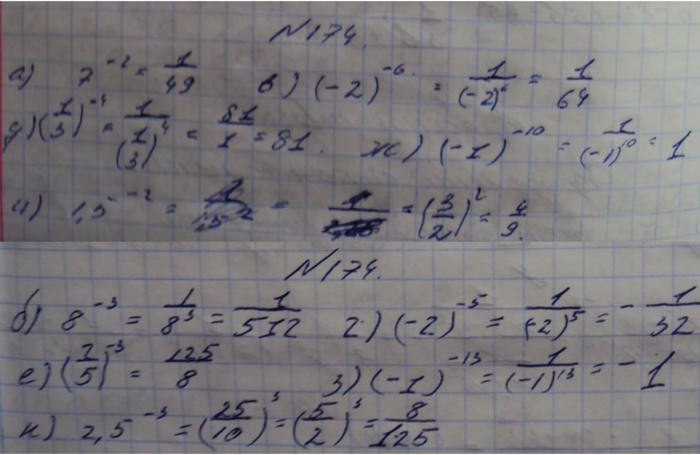 №174.
а) 7^-2 = 1/49 в) (-2)^-6 = 1/(-2)^6 = 1/64
д) (1/3)^-4 = 1/(1/3)^4 = 81/1 = 81. ж) (-1)^-10 = 1/(-1)^10 = 1
и) 1,5^-2 = = = (3/2)^2 = 4/9.
№174.
б) 8^-3 = 1/8^3 = 1/512 г) (-2)^-5 = 1/(-2)^5 = -1/32
е) (2/5)^-3 = 125/8 з) (-1)^-13 = 1/(-1)^13 = -1
к) 2,5^-3 = (25/10)^3 = (5/2)^3 = 8/125